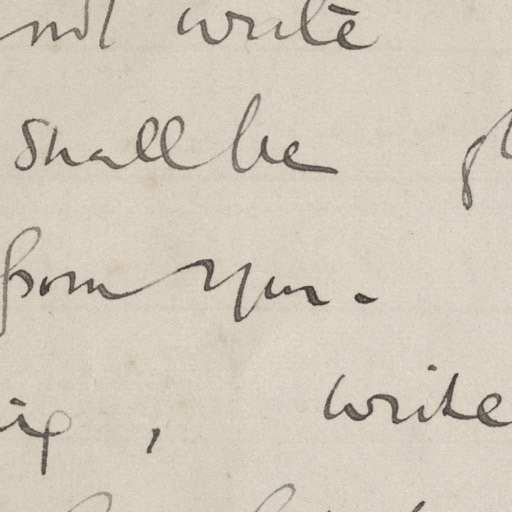 not write
shall be
from you.
, write